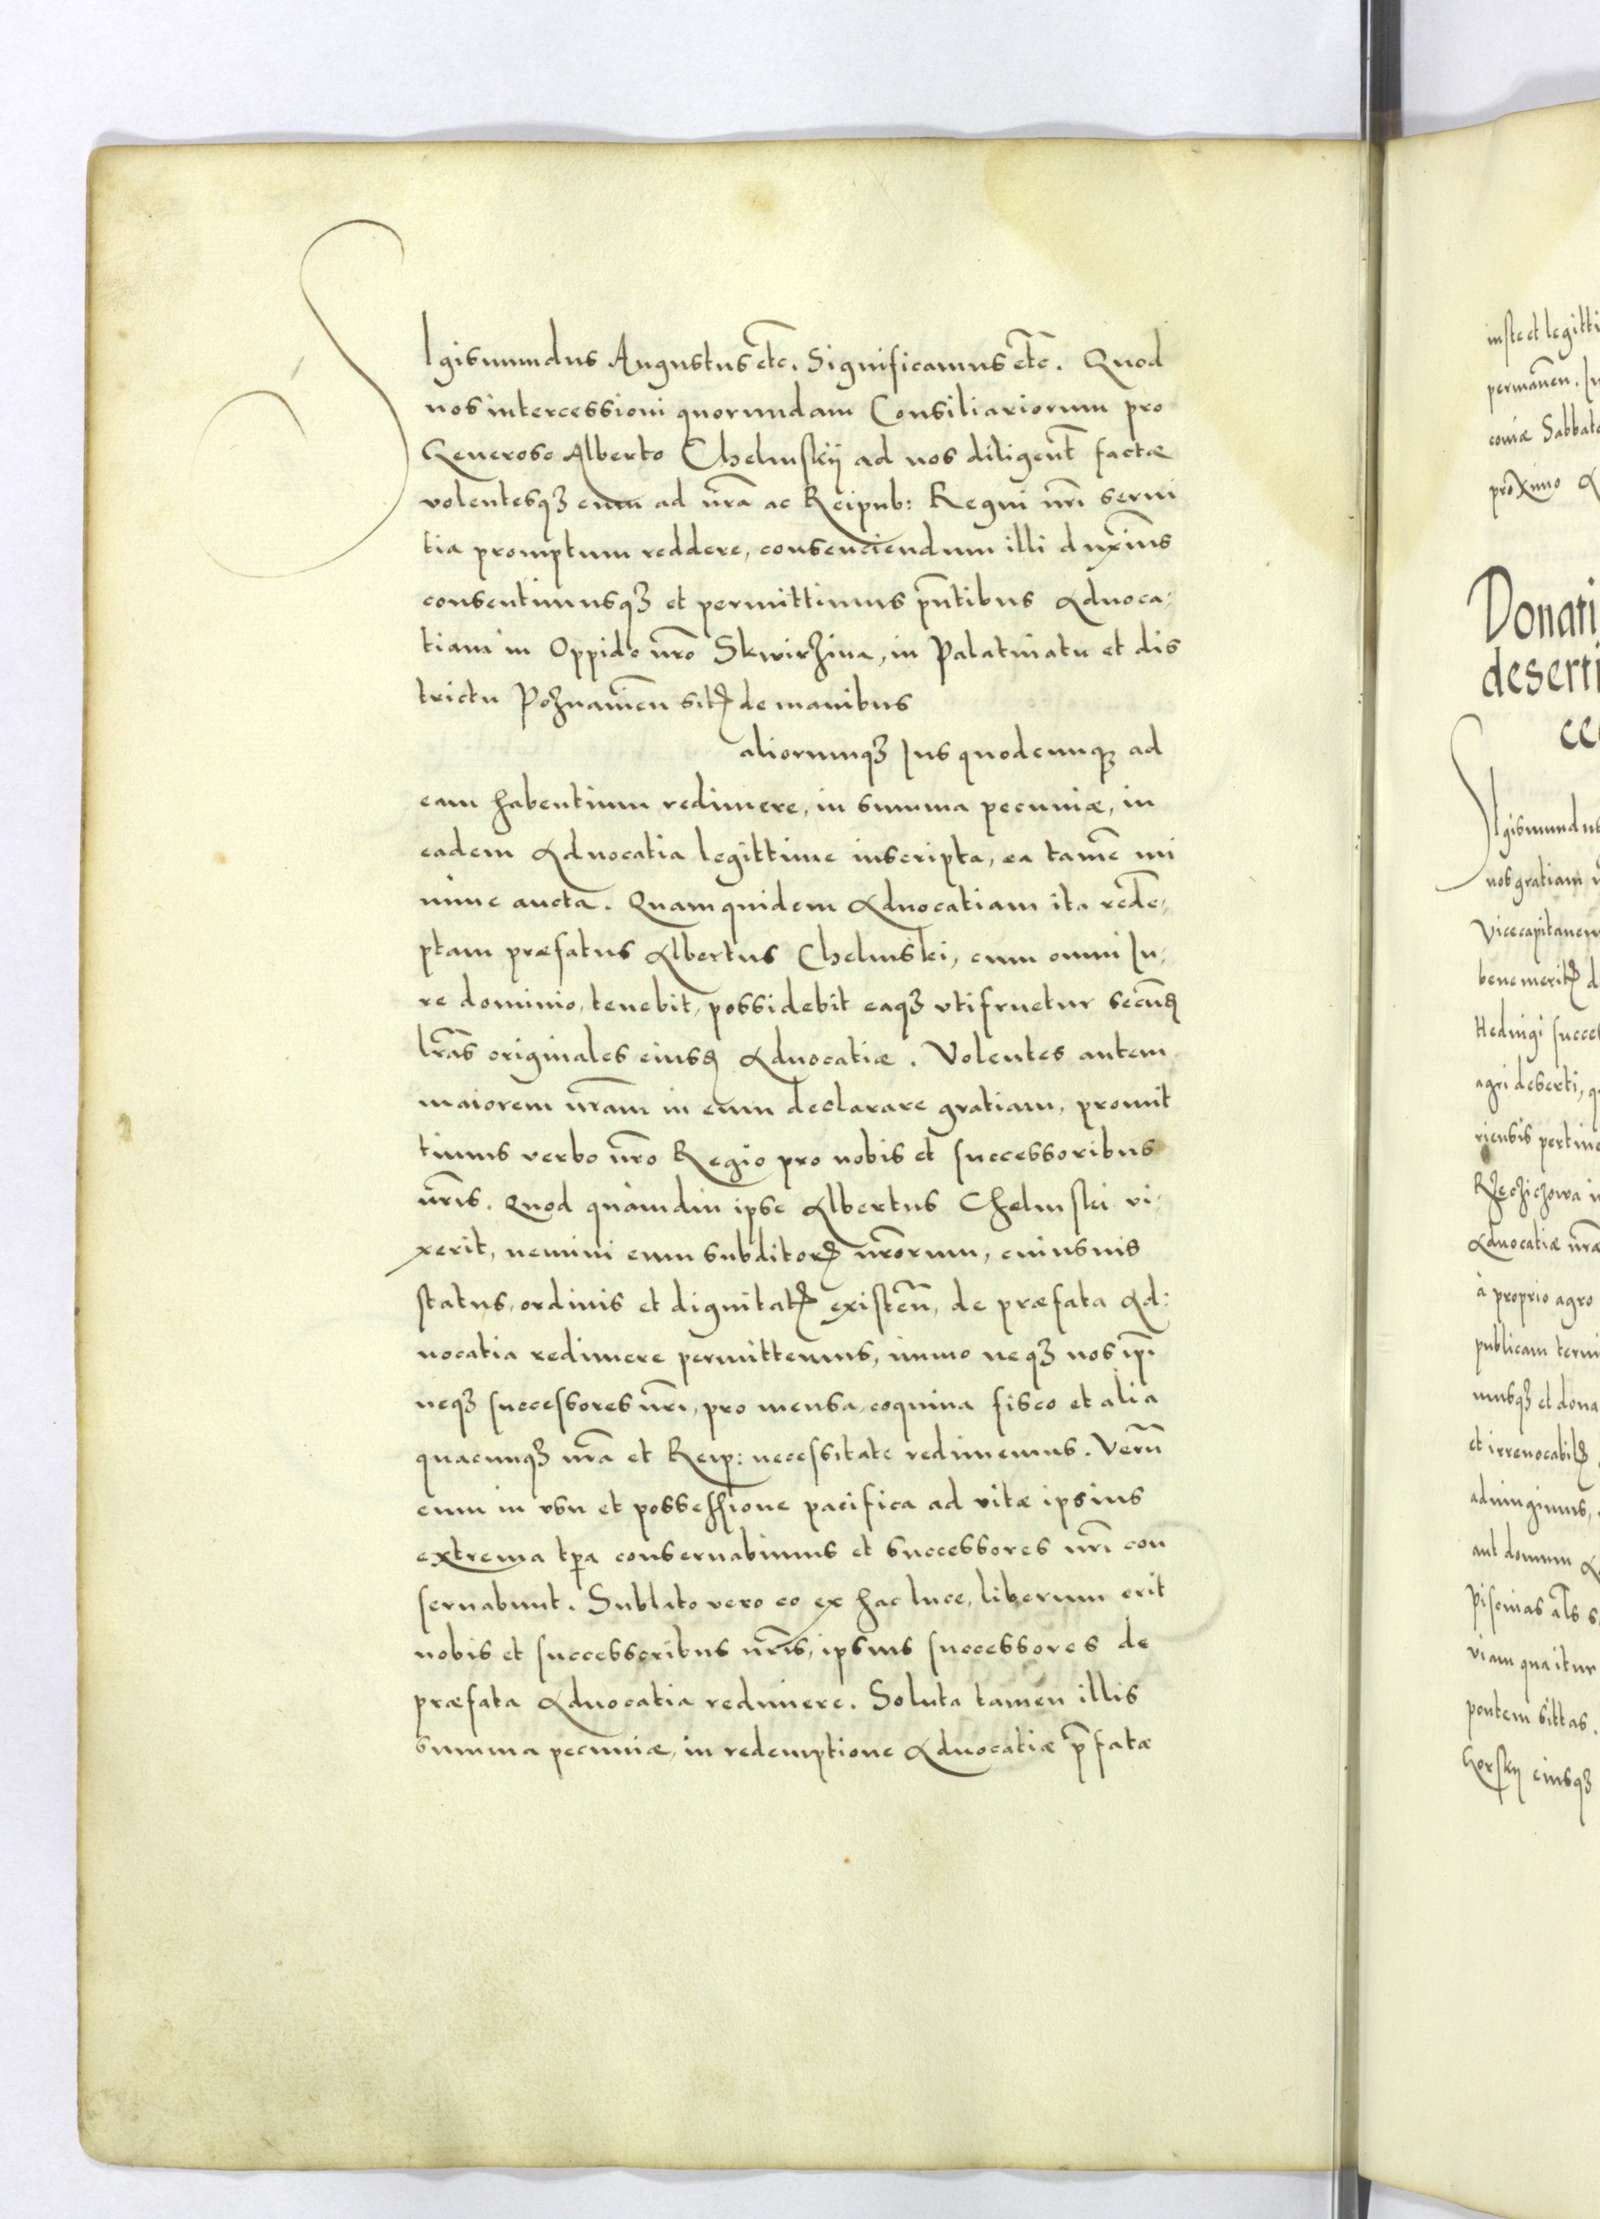 SIgismundus Augustus etc̃. Significamus etc̃. Quod
nos intercessioni quorundam Consiliariorum pro
Generoso Alberto Chelmskij ad nos diligent̃ factæ
volentesqꝫ eum ad nr̃a ac Reipub: Regni nr̃i serui
tia promptum reddere, consenciendum illi duxim̃us
consentimusqꝫ et permittimus pñtibus Aduoca,
tiam in Oppido nr̃o Skwirzina, in Palatinatu et dis
trictu Poznanieñ sitꝭ de manibus
aliorumqꝫ Ius quodcunqꝫ ad
eam habentium redimere, in summa pecuniæ, in
eadem Aduocatia legittime inscripta, ea tamẽ mi
nime aucta. Quamquidem Aduocatiam ita redẽ,
ptam præfatus Albertus Chelmski, cum omni Iu,
re dominio, tenebit, possidebit eaqꝫ vtifruetur secũꝺ
lr̃as originales eiusꝺ Aduocatiæ. Volentes autem
maiorem nr̃am in eum declarare gratiam, promit
timus verbo nr̃o Regio pro nobis et successoribus
nr̃is. Quod quamdiu ipse Albertus Chelmski vi,
xerit, nemini eum subditorꝭ nr̃orum, cuiusuis
status, ordinis et dignitatꝭ existeñ, de præfata Ad:
uocatia redimere permittemus, immo neqꝫ nos ip̃i
neqꝫ successores nr̃i, pro mensa, coquina fisco et alia
quacunqꝫ nr̃a et Reip: necessitate redimemus. Verũ
eum in vsu et possessione pacifica ad vitæ ipsius
extrema tp̃a conseruabimus et successores nr̃i con
seruabunt. Sublato vero eo ex hac luce, liberum erit
nobis et successoribus nr̃is, ipsius successores de
præfata Aduocatia redimere. Soluta tamen illis
summa pecuniæ, in redemptione Aduocatiæ p̃fatæ
iuste et legitti
permaneñ. In
coniæ Sabbato
proximo
Donati
deserti
SIgismundus
nos gratiam
Vicecapitaneum
benemeritꝭ d
Heduigi succes
agri deserti, q
riensis pertine
Rzechiczowa
Aduocatiæ nr̃æ
à proprio agro
publicam termi
musqꝫ et dona
et irreuocabilꝭ
adiungimus,
aut domum
piscinas als̃ s
viam qua itur
pontem sittas.
Gorskij eiusqꝫ